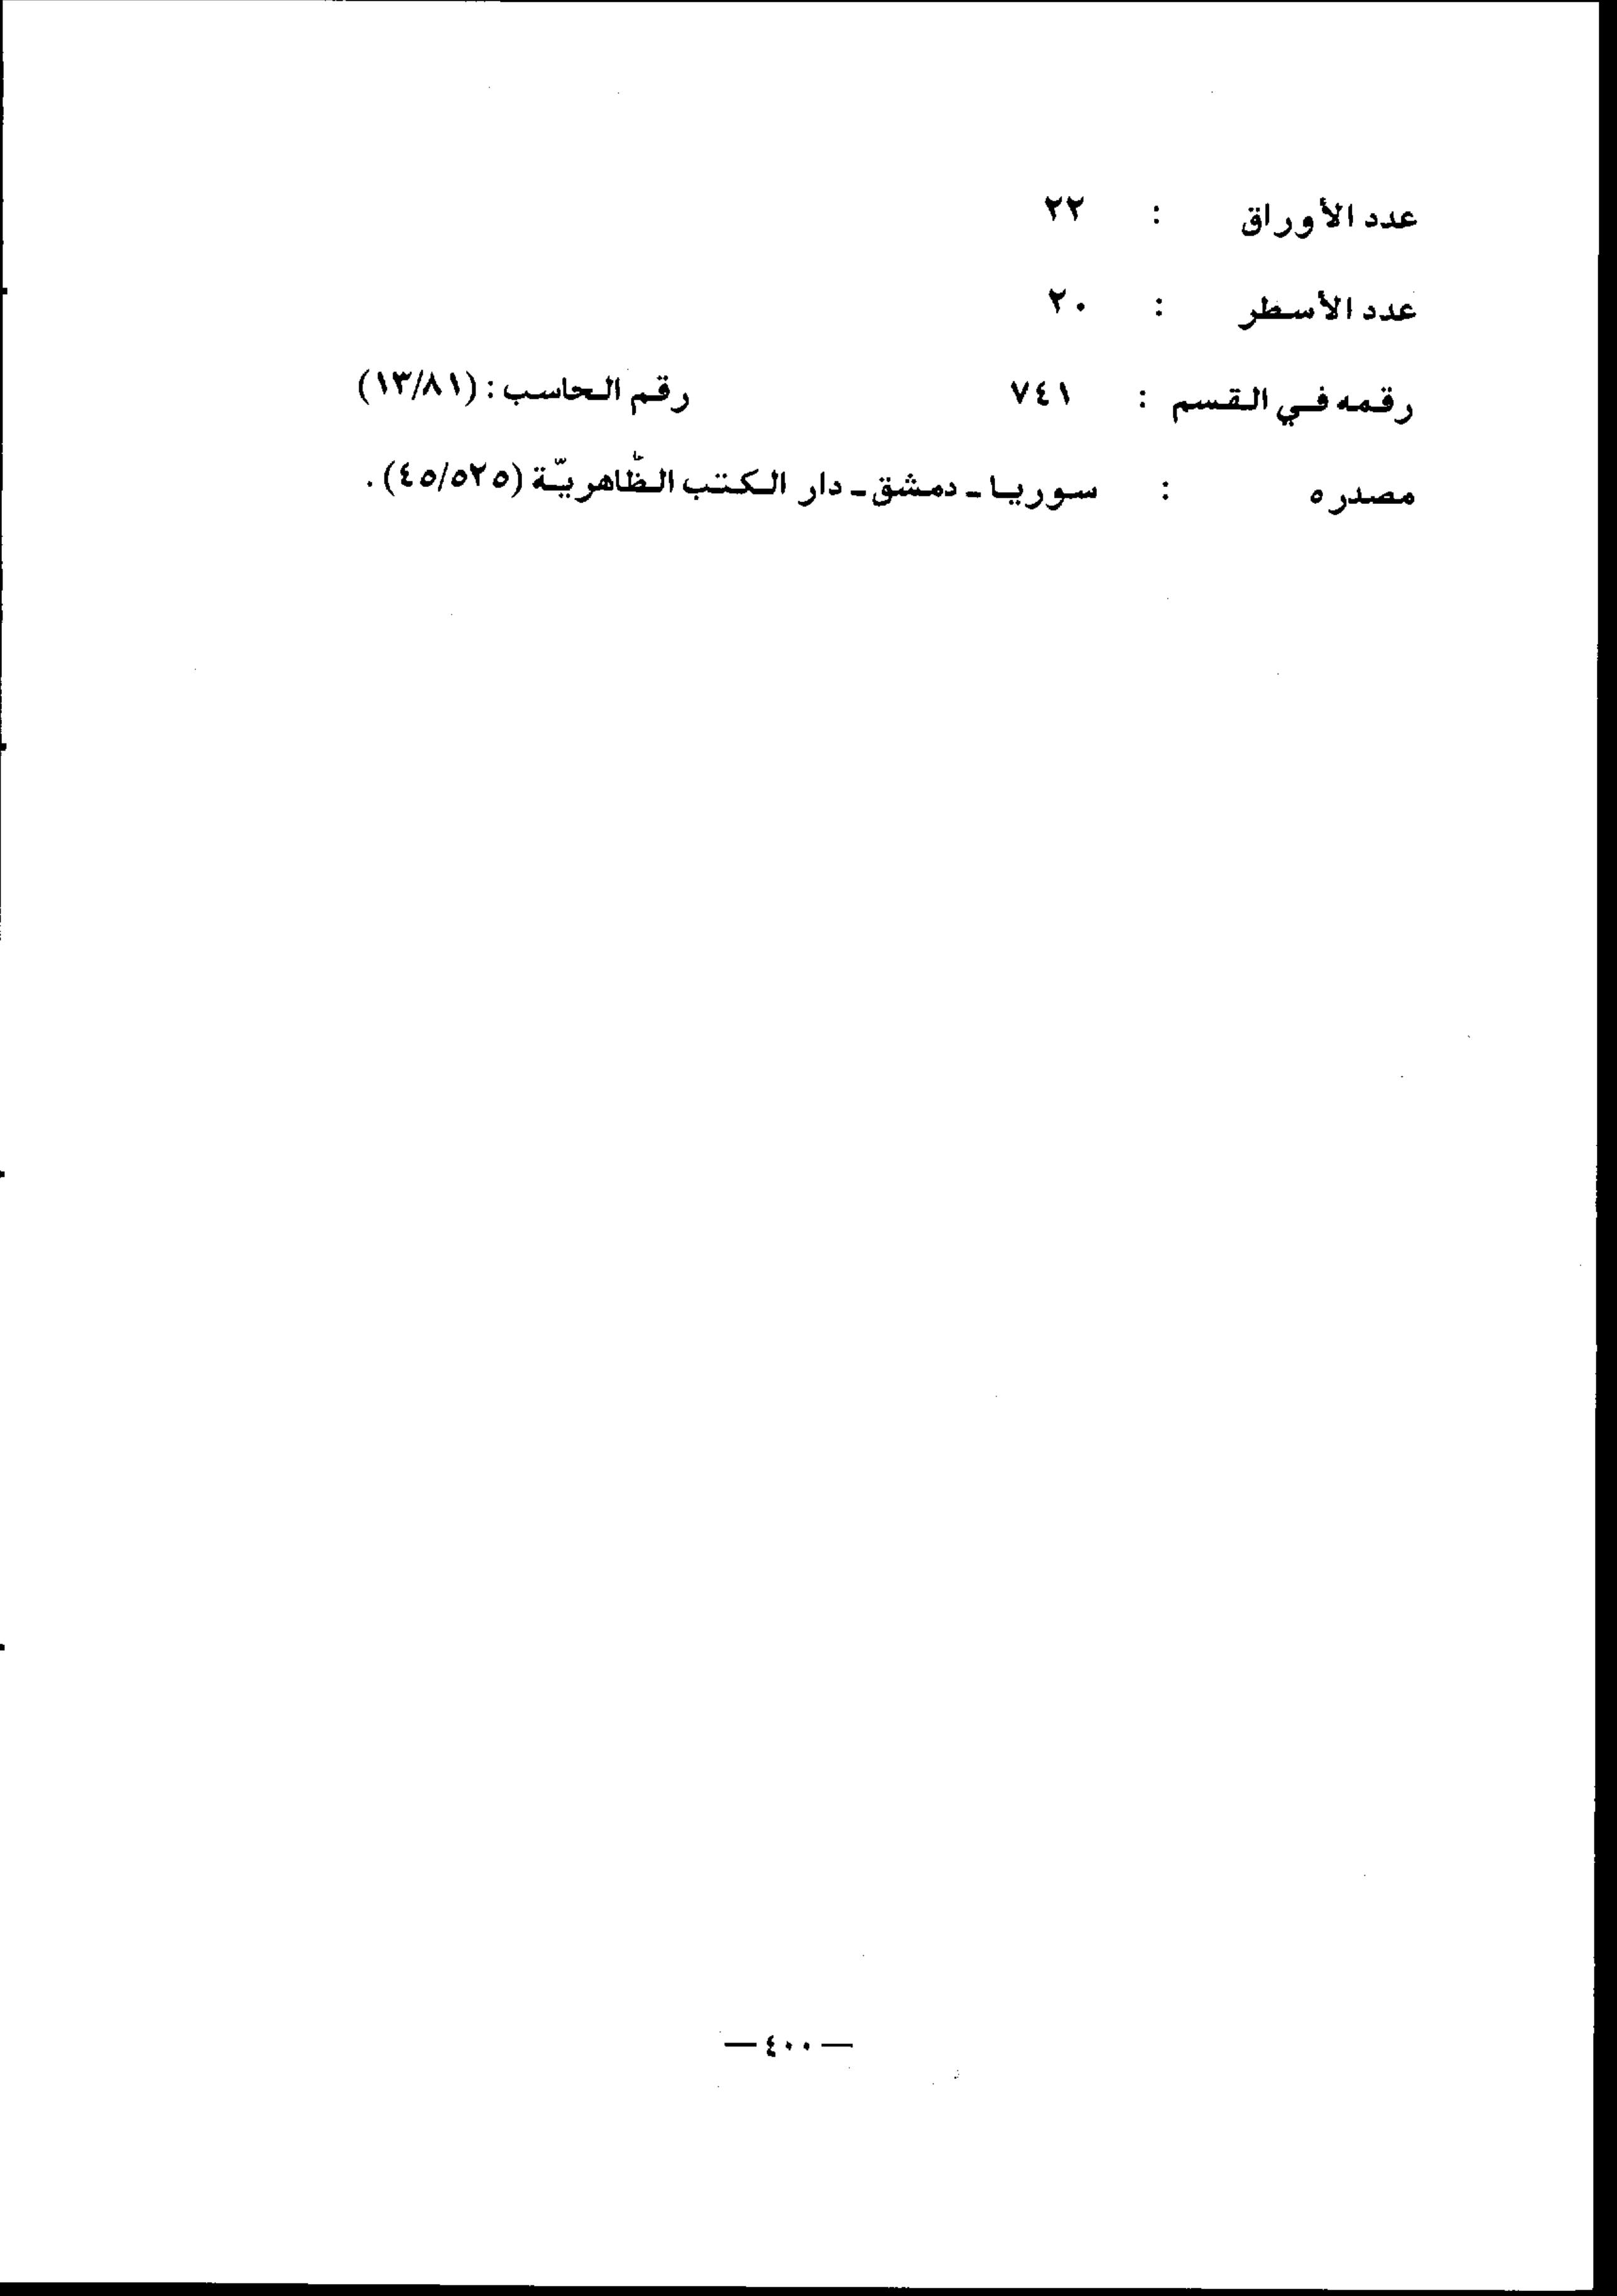 عدد الأوراق : ٢٢
عدد الأسطر : ٢٠
رقمه في القسم : ٧٤١ رقم الحاسب : (١٣/٨١)
مصدره : سوريا - دمشق - دار الكتب الظّاهريّة (٤٥/٥٢٥) .
— ٤٠٠ —